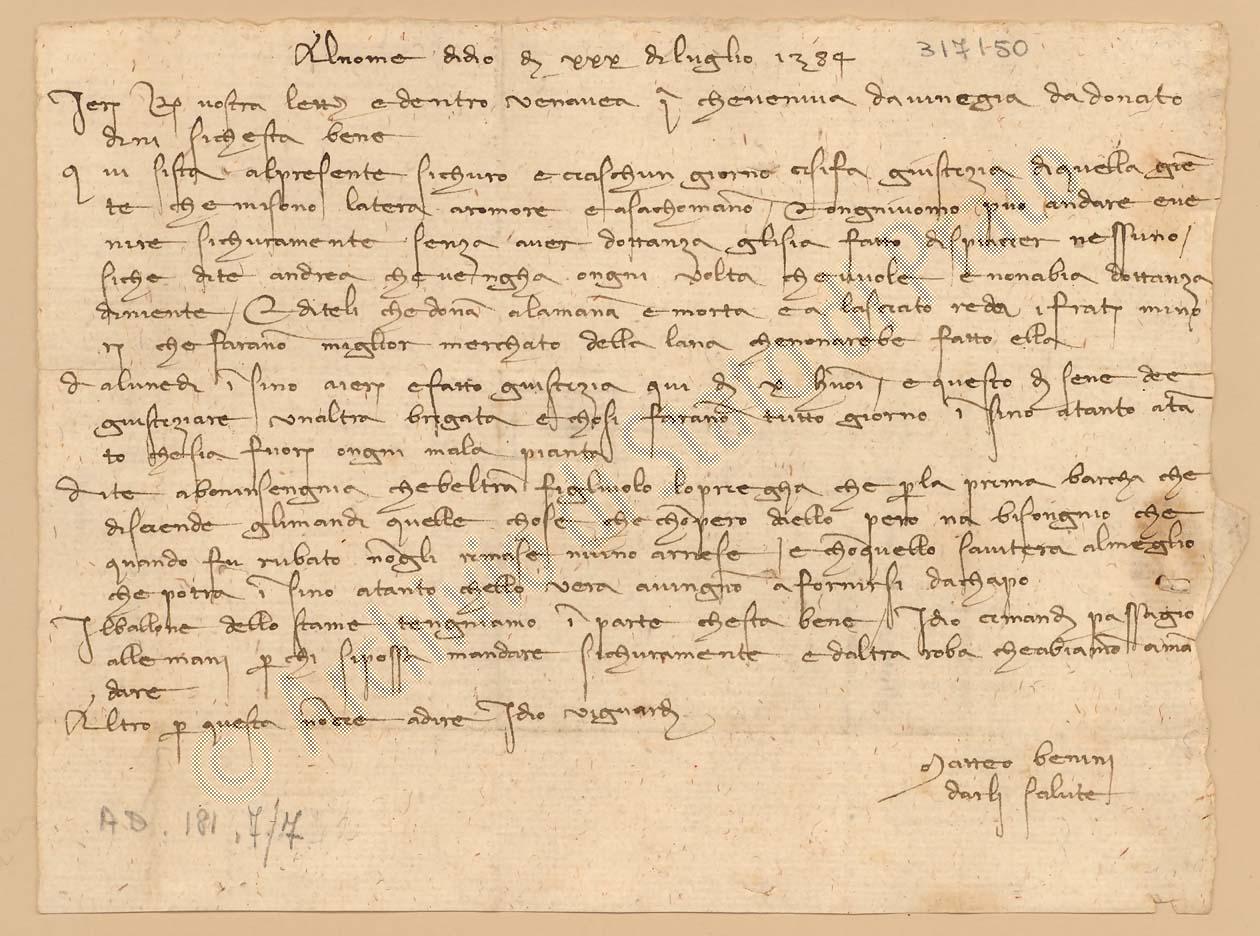 Al nome di dio dì xxx di luglio 1384
317150
Ieri R vostra lettera e dentro v'enavea i che veniva da vinegia da donato
dini si che sta bene
qui si sta al presente sichuro e ciaschun giorno ci si fa giustizia di quella gien
te che misono la tera a romore e a sachomano / E ongn'uomo può andare e ve
nire sichuramente senza aver dottanza gli sia fatto dispiacier nessuno /
si che dite andrea che vengha ongni volta che vuole e non abia dottanza
di niente / E diteli che dona alamana è morta e a lasciato reda i frati mino
ri che farano miglior merchato della lana che non arebe fatto ella
da lunedi i sino a ieri è fatto giustizia qui di x huomini e questo dì se ne dee
giustiziare un altra brigata e chosi farano tutto giorno i sino a tanto a ta
to che sia fuori ongni mala pianta
dite a boninsengnia che beltramo figliuolo lo priegha che per la prima barcha che
disciende gli mandi quelle chose che chompero diello pero n'a bisongnio che
quando fu rubato non gli rimase niuno arnese / e chon quello s'aiutera al meglio
che potra i sino a tanto ch'ello vera a vingnone a fornirsi da chapo
Il ballone dello stame tengniamo i parte che sta bene / Idio ci mandi passagio
alle mani per chi si possa mandare sichuramente e d'altra roba che abiamo a man
dare
Altro per questa non c'è a dire Idio vi guardi
Matteo benini
d'arli salute
AD. 181, 7/7
© Archivio di Stato di Prato